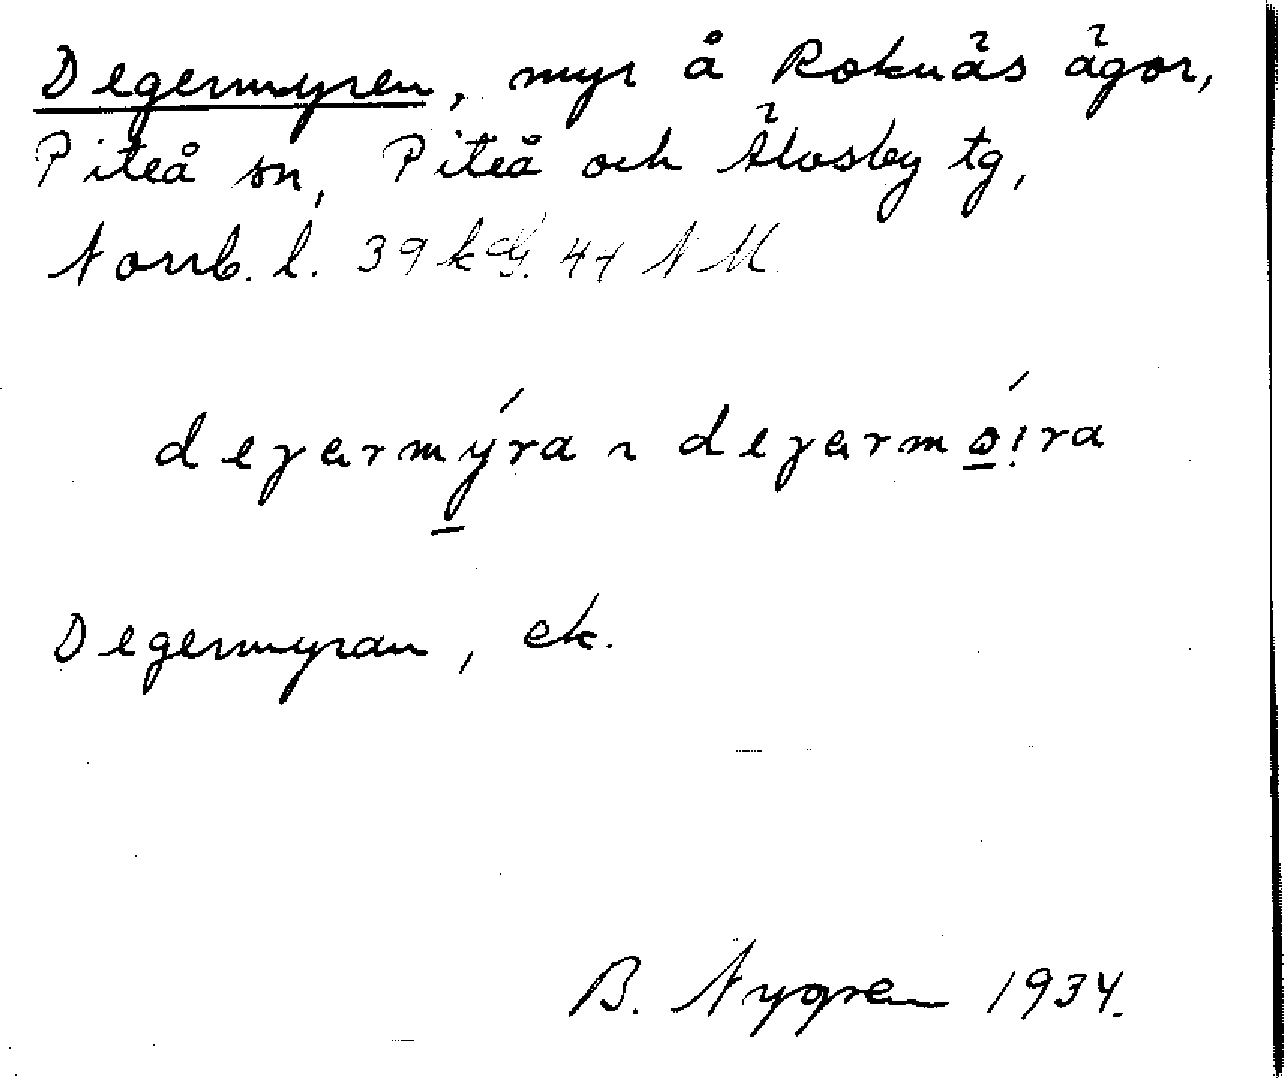 Degermyren, myr å Roknäs ägor,
Piteå sn, Piteå och Älvsby tg,
Norrb. l. 39 k 44 NM
degermýra ~ degermøira
Degermyran, ek.
B. Nygren 1934.